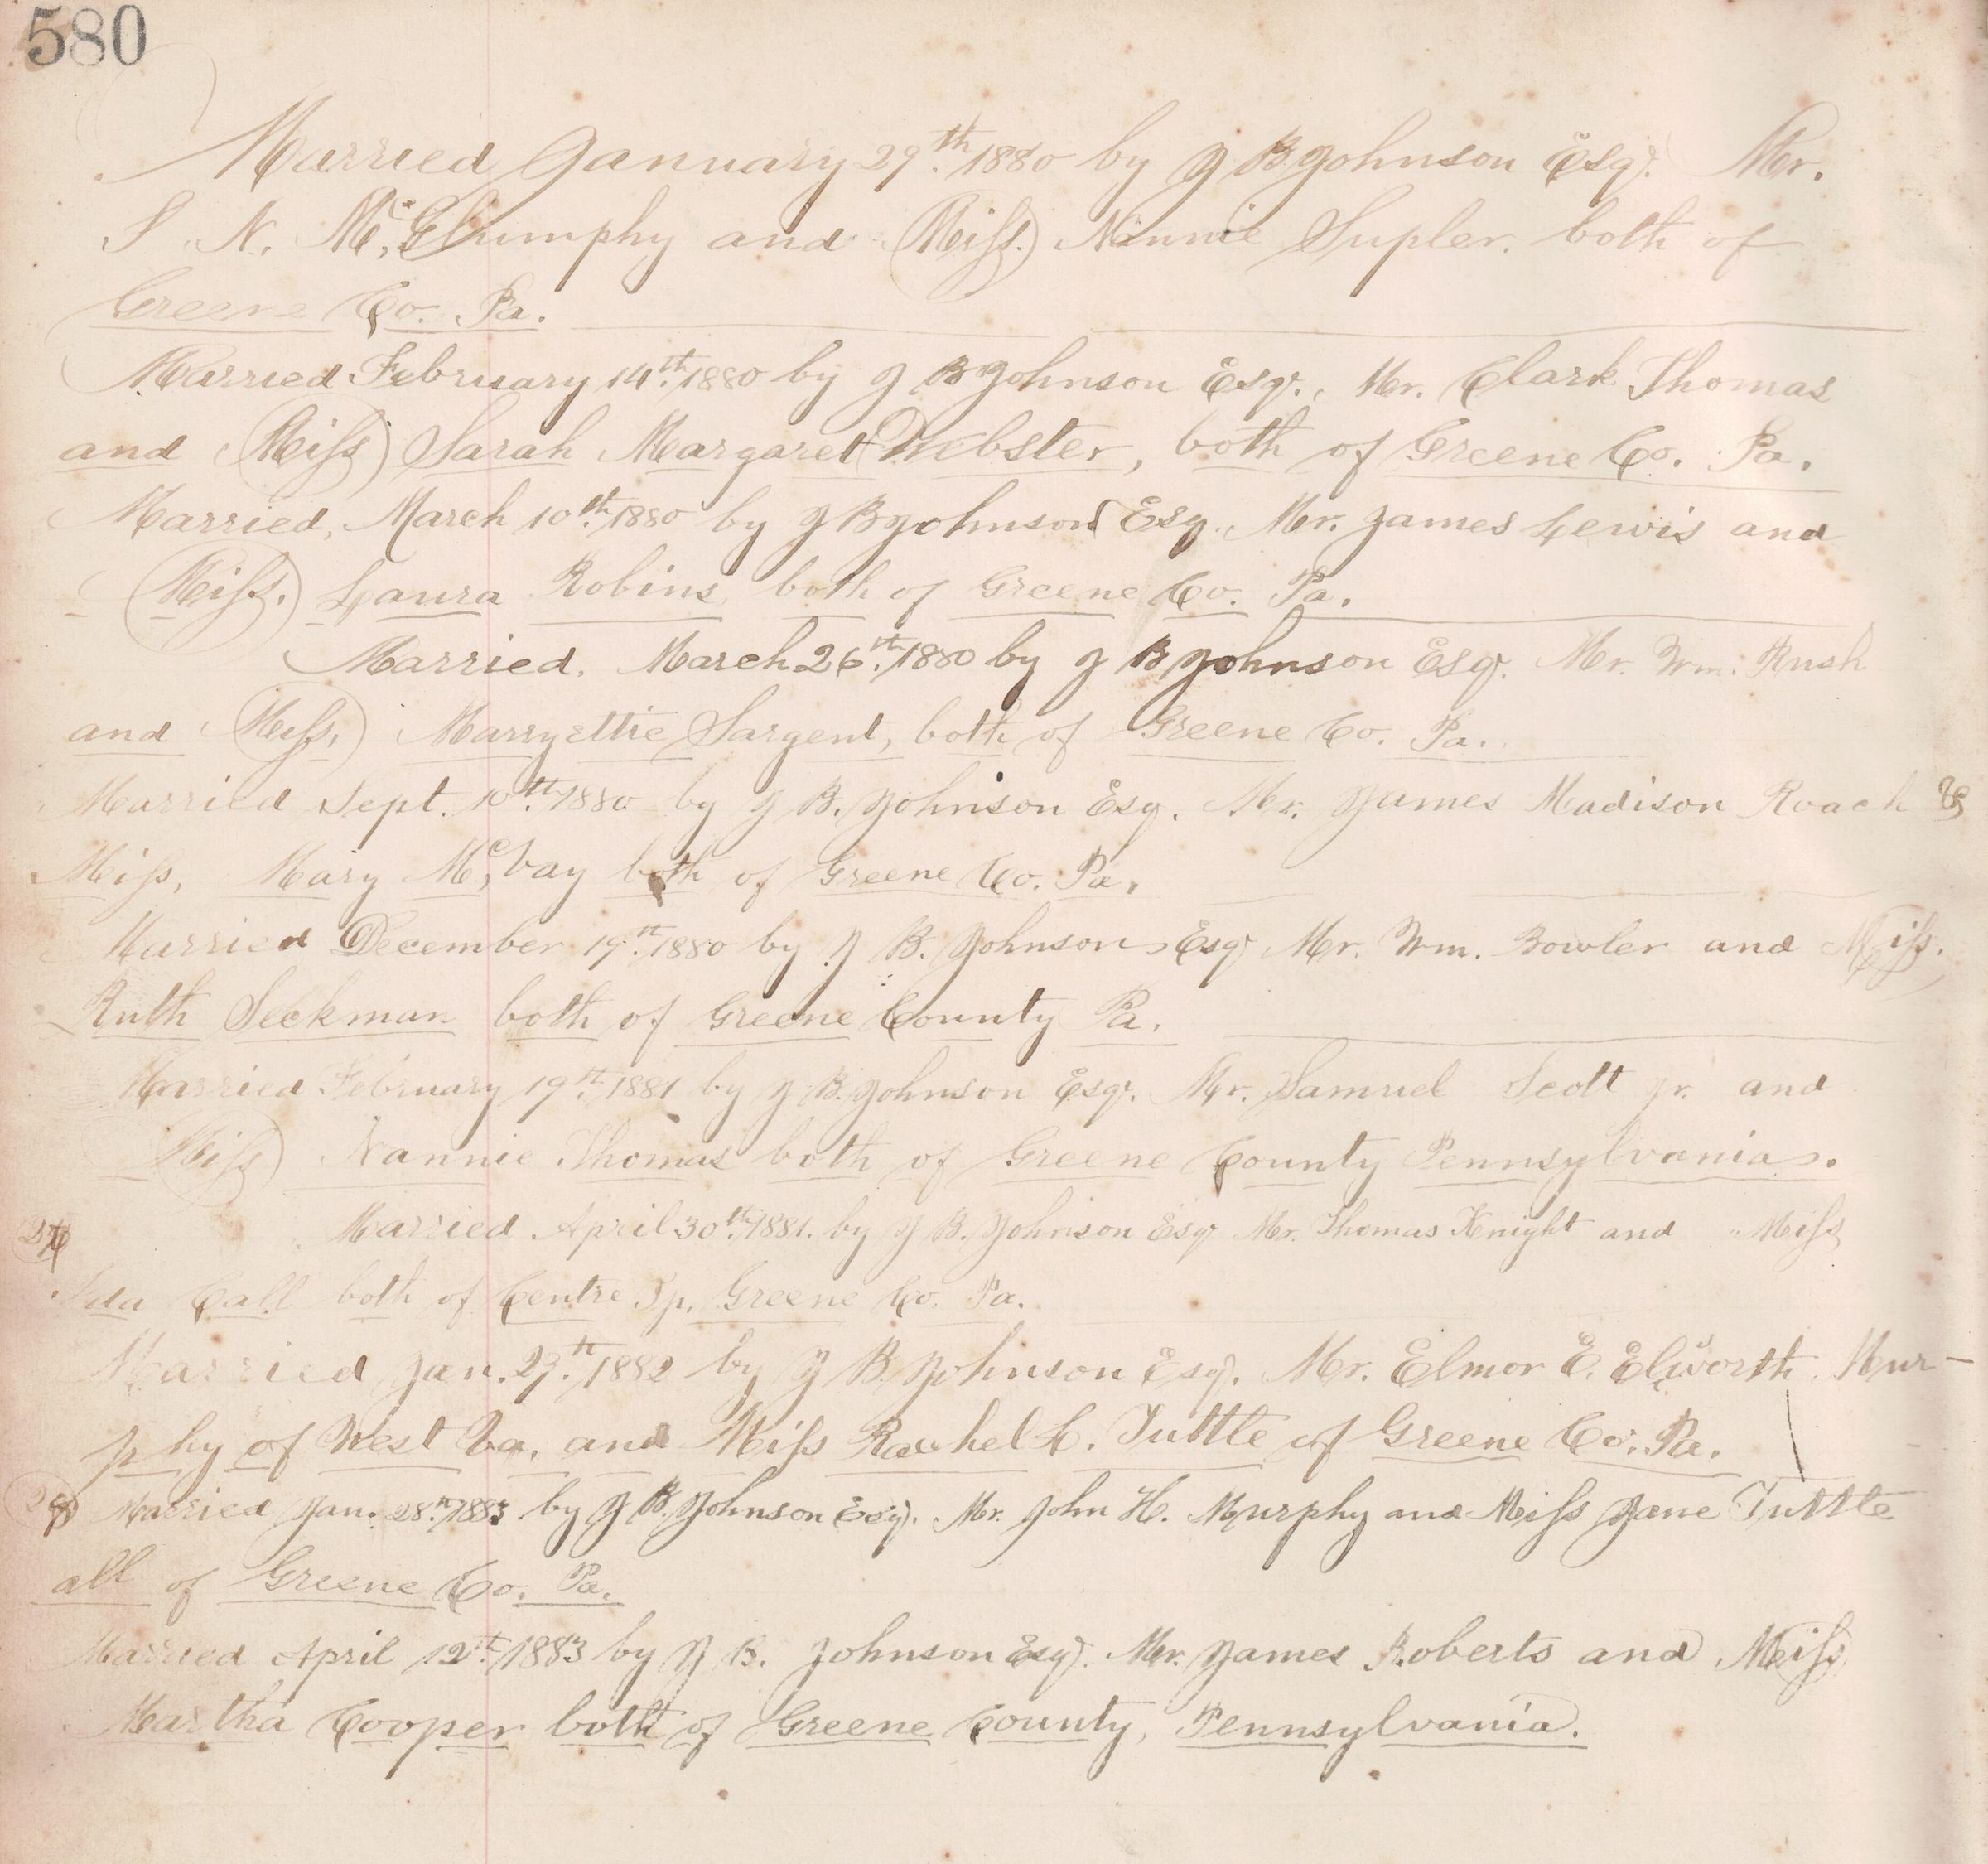 580
Married January 29th. 1880 by J B Johnson Esq. Mr.
S. N. Mc,Glumphy and Miss. Nannie Supler. both of
Greene Co. Pa.
Married February 14th. 1880 by J B Johnson Esqr., Mr. Clark Thomas
and Miss Sarah Margaret Webster, both of Greene Co. Pa.
Married, March 10th. 1880 by J B Johnson Esq. Mr. James Lewis and
Miss. Laura Robins both of Greene Co. Pa.
Married. March 26th. 1880 by J B Johnson Esqr. Mr. Wm. Rush
and Miss, Marryettie Sargent, both of Greene Co. Pa.
Married Sept. 10th. 1880 by J B. Johnson Esq. Mr. James Madison Roach &
Miss, Mary Mc,Vay both of Greene Co. Pa.
Married December 19th. 1880 by J B. Johnson Esqr Mr. Wm. Bowler and Miss.
Ruth Seckman both of Greene County Pa.
Married February 19th. 1881 by J B. Johnson Esqr. Mr. Samuel Scott Jr. and
Miss Nannie Thomas both of Greene County Pennsylvania.
Married April 30th. 1881. by J B. Johnson Esqr Mr. Thomas Knight and Miss
Ida Call both of Centre Tp. Greene Co. Pa.
Married Jan. 29th. 1882 by J B. Johnson Esq. Mr. Elmor E. Elsworth Mur-
phy of West Va. and Miss Rachel L. Tuttle of Greene Co. Pa.
Married Jan. 28th. 1883 by J B. Johnson Esq. Mr. John H. Murphy and Miss Jane Tuttle
all of Greene Co. Pa.
Married April 12th. 1883 by J B. Johnson Esq. Mr. James Roberts and Miss
Martha Cooper both of Greene County, Pennsylvania.